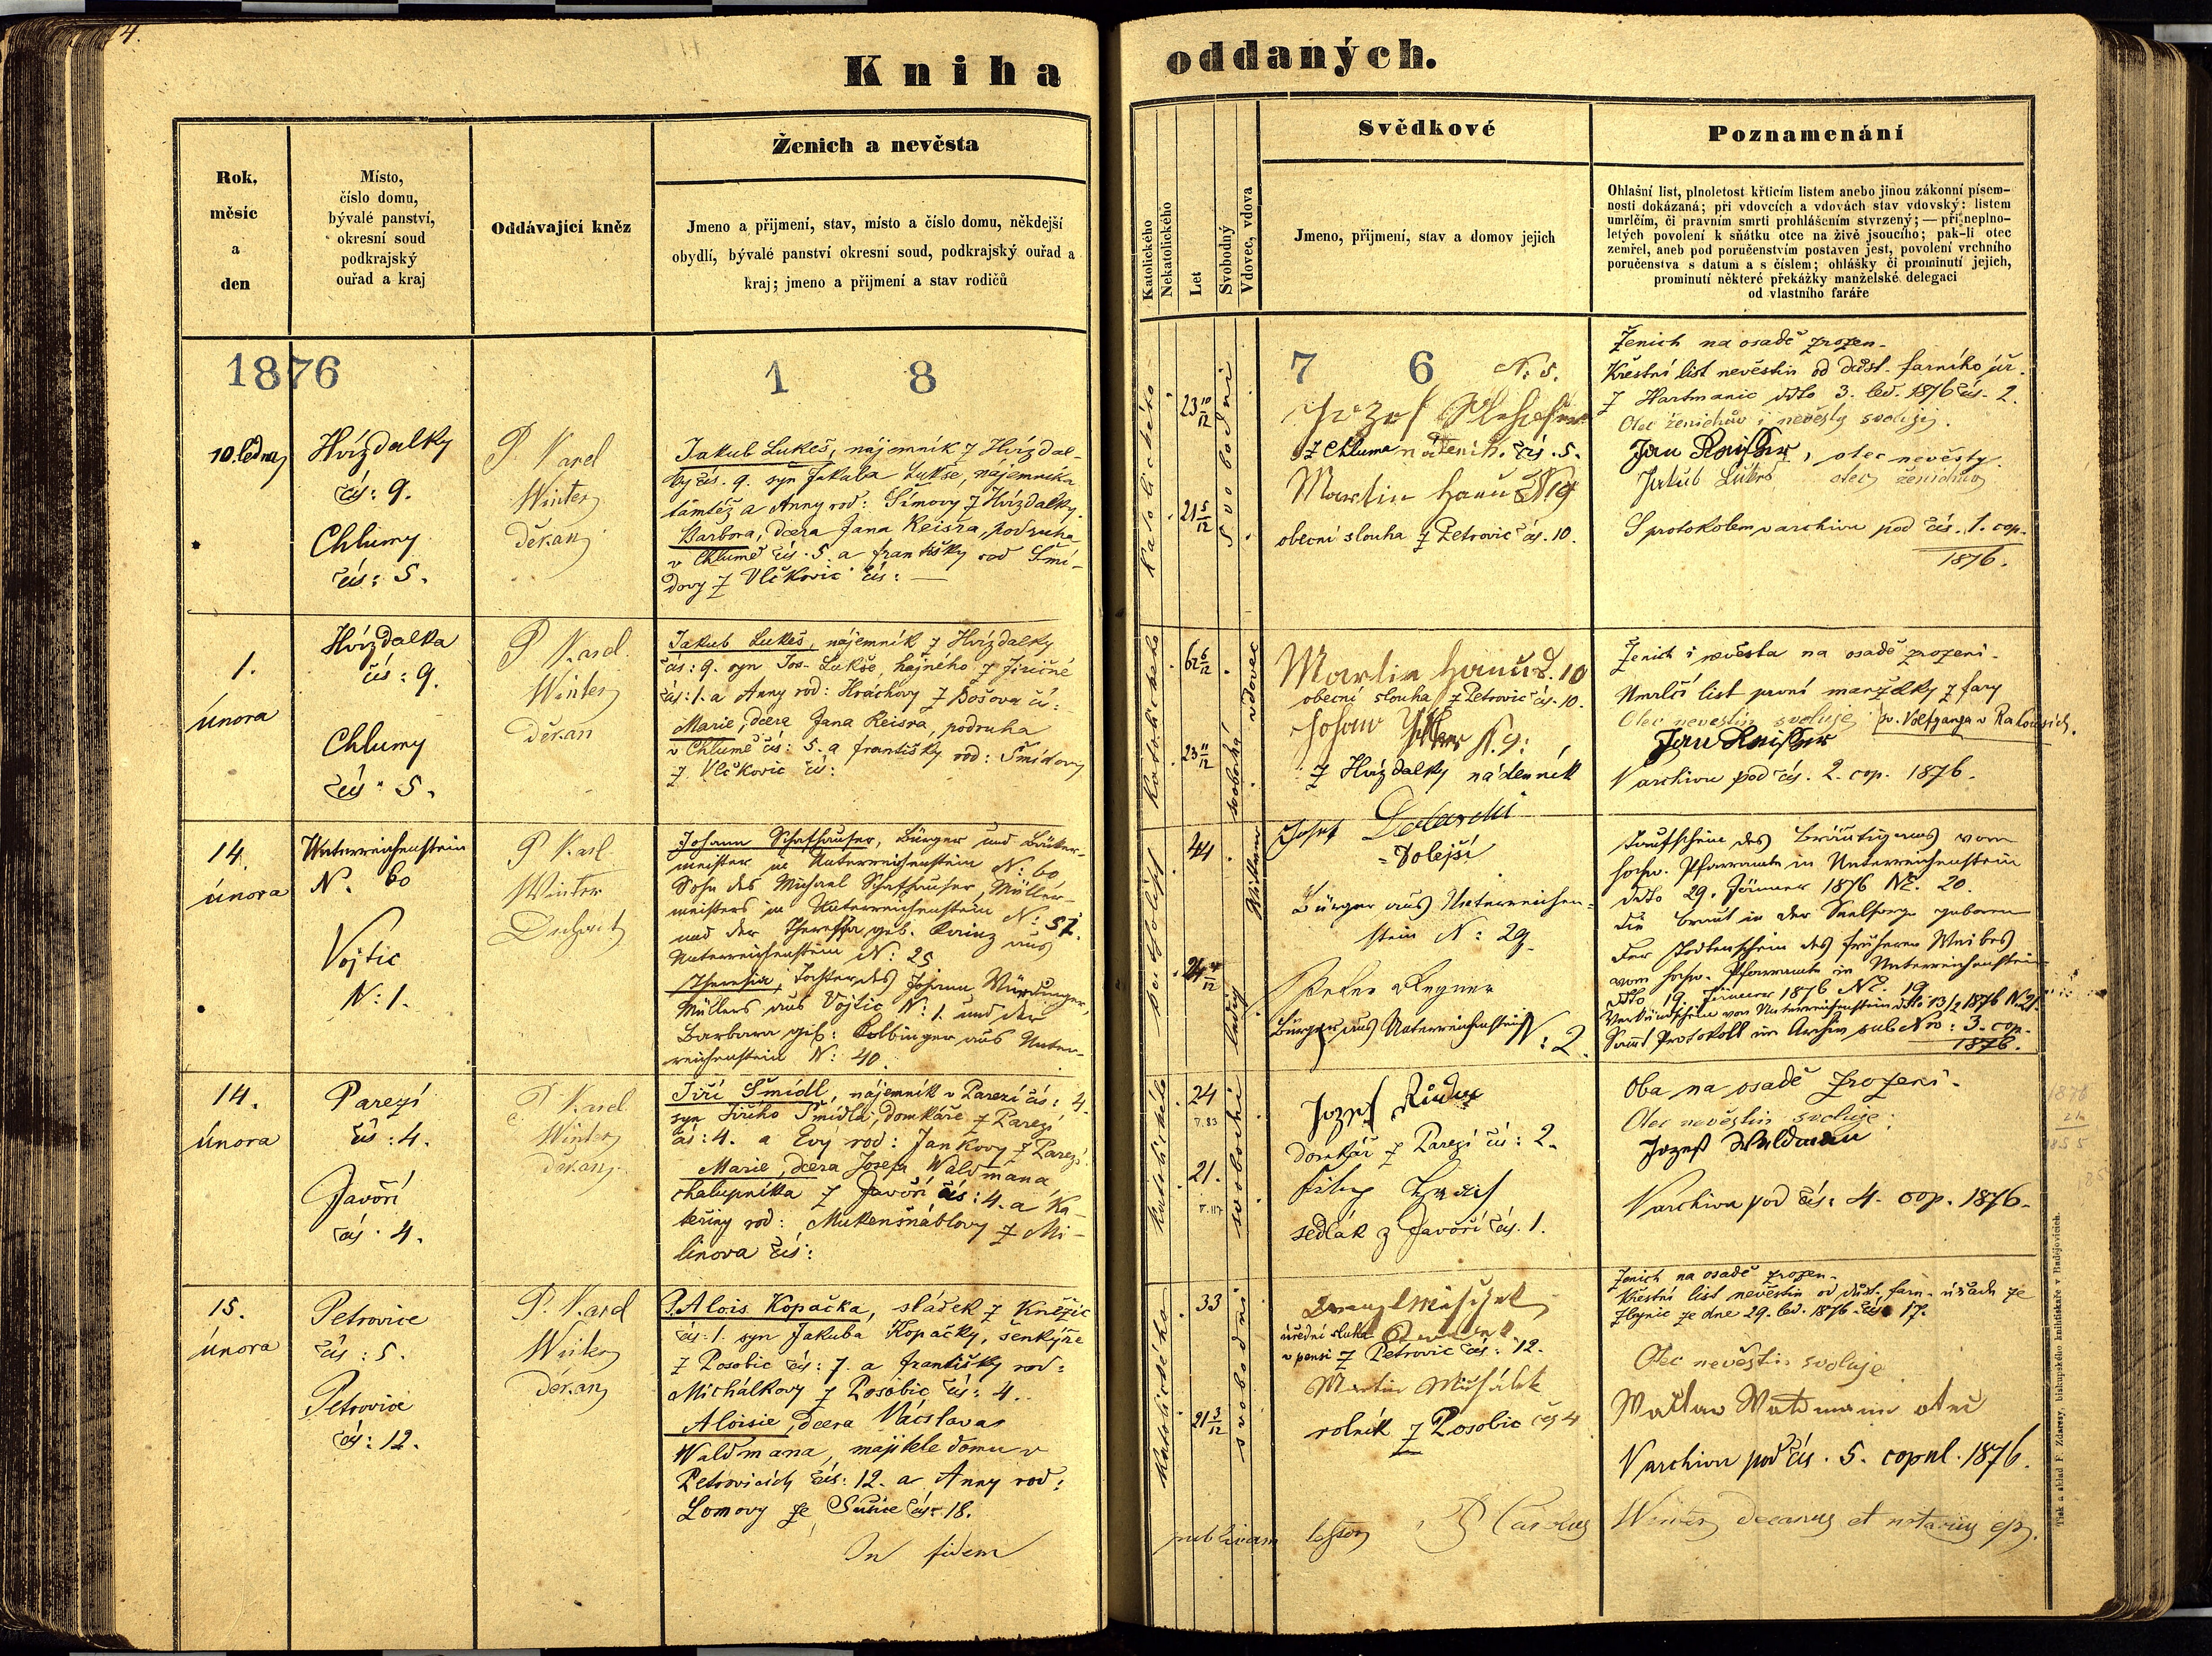 4.
Kniha oddaných.
Rok,
měsíc
a
den
Místo,
číslo domu,
bývalé panství,
okresní soud
podkrajský
ouřad a kraj
Oddávající kněz
Ženich a nevěsta
Jmeno a přijmení, stav, místo a číslo domu, někdejší
obydlí, bývalé panství okresní soud, podkrajský ouřad a
kraj; jmeno a přijmení a stav rodičů
Katolického
Nekatolického
Let
Svobodný
Vdovec, vdova
Svědkové
Jmeno, přijmení, stav a domov jejich
Poznamenání
Ohlašní list, plnoletost křticím listem anebo jinou zákonní písem-
nosti dokázaná; při vdovcích a vdovách stav vdovský: listem
umrlčím, či pravním smrti prohlášením stvrzený; — při neplno-
letých povolení k sňátku otce na živě jsoucího; pak-li otec
zemřel, aneb pod poručenstvím postaven jest, povolení vrchního
poručenstva s datum a s číslem; ohlášky či prominutí jejich,
prominutí některé překážky manželské delegaci
od vlastního faráře
1876
1 8 7 6
10. ledna
Hvízdalky
čís: 9.
Chlumy
čís: 5.
P. Karel
Winter
děkan
Jakub Lukeš, nájemník z Hvízdal-
ky čís. 9. syn Jakuba Lukše, nájemníka
tamtéž a Anny rod: Šímovy z Hvízdalky.
Barbora, dcera Jana Reisra, podruha
v Chlumě čís. 5. a Františky rod Šmí-
dovy z Vlčkovic čís: —
katolického
23 10/12
21 5/12
svobodní
N: 5.
Jozef
z Chluma nádeník. čís. 5.
Martin Hanuš N 19
obecní slouha z Petrovic čís. 10.
Ženich na osadě zrozen.
Křestní list nevěstin od důst. farního úř.
z Hartmanic ddto 3. led. 1876 čís. 2.
Otec ženichův i nevěsty svolují.
Jan Reißer, otec nevěsty.
Jakub Lukeš otec ženichův
S protokolem v archivu pod čís. 1. cop.
1876.
1.
února
Hvízdalka
čís: 9.
Chlumy
čís: 5.
P. Karel
Winter
děkan
Jakub Lukeš, nájemník z Hvízdalky
čís: 9. syn Jos. Lukše, hajného z Jiřičné
čís: 1. a Anny rod: Hrachovy z Bošova čí:
Marie, dcera Jana Reisra, podruha
v Chlumě čís: 5. a Františky rod: Šmídovy
z Vlčkovic čís:
katolického
62 6/12
23 11/12
vdovec
svobodná
Martin Hanuš. 10
obecní slouha z Petrovic čís. 10.
Johan N. 9:
z Hvízdalky nádenník
Ženich i nevěsta na osadě zrozeni.
Umrlčí list první manželky z fary
Otec nevěstin svoluje sv. Volfganga v Rabouních.
Jan Reißer
V archivu pod čís. 2. cop. 1876.
14
února
Unterreichenstein
N. 60
Vojtic
N: 1.
P. Karl
Winter
Dechant
Johann Schafhauser, Bürger und Bäcker-
meister in Unterreichenstein N: 60
Sohn des Michael Schafhauser, Müller-
meisters in Unterreichenstein N: 51.
und der Theresia geb. Kainz aus
Unterreichenstein N: 25
Theresia, Tochter des Johann Würdinger,
Müllers aus Vojtic N: 1. und der
Barbara geb: Kolbinger aus Unter-
reichenstein N: 40.
katholisch
44
24 4/12
Witwer
ledig
Josef
=Dolejší
Bürger aus Unterreichen-
stein N: 29.
Peter Regner
Bürger aus Unterreichenstein N: 2.
Taufschein des Bräutigams vom
hochw. Pfarramte in Unterreichenstein
ddto 29. Jänner 1876 Nr. 20.
Die Braut in der Seelsorge geboren
Der Todtenschein des früheren Weibes
vom hochw. Pfarramte in Unterreichenstein
ddto 19. Jänner 1876 Nr. 19
Verkündschein von Unterreichenstein ddto 13/2 1876 N. 21.
Samt Protokoll im Archiv sub Nro: 3. cop.
1876.
14.
února
Parezí
čís: 4.
Javoří
čís. 4.
P. Karel
Winter
děkan
Jiří Šmídl, nájemník v Parezí čís: 4.
syn Jiřího Šmídla, domkáře z Parezí
čís: 4. a Evy rod: Jankovy z Parezí
Marie, dcera Josefa Waldmana,
chalupníka z Javoří čís: 4. a Ka-
teřiny rod: Mukenšnáblovy z Mi-
línova čís:
katolického
24
21.
svobodní
Jozef
domkář z Parezí čís: 2.
sedlák z Javoří čís. 1.
Oba na osadě zrozeni.
Otec nevěstin svoluje:
Jozef Waldman
V archivu pod čís: 4. cop. 1876.
1876
21
1855
15.
února
Petrovice
čís: 5.
Petrovice
čís: 12.
P. Karel
Winter
děkan
P. Alois Kopačka, sládek z Kněžic
čís: 1. syn Jakuba Kopačky, šenkýře
z Posobic čís: 7. a Františky rod:
Michálkovy z Posobic čís: 4.
Aloisie, dcera Václava
Waldmana, majitele domu v
Petrovicích čís: 12. a Anny rod:
Lomovy ze Sušice čís: 18.
katolického
33
21 3/12
svobodní
úřední sluha
v pensi z Petrovic čís: 12.
Martin Michálek
rolník z Posobic čís 4
Ženich na osadě zrozen.
Křestní list nevěstin od důst. farn. úřadu ze
Zbynic ze dne 29. led. 1876 čís. 17.
Otec nevěstin svoluje
Watzlav Waldmann otec
V archivu pod čís. 5. copul. 1876.
In fidem publicam P. Carolus Winter decanus et notarius ep.
Tisk a sklad F. Zdarssy, biskupského knihtiskaře v Budějovicích.